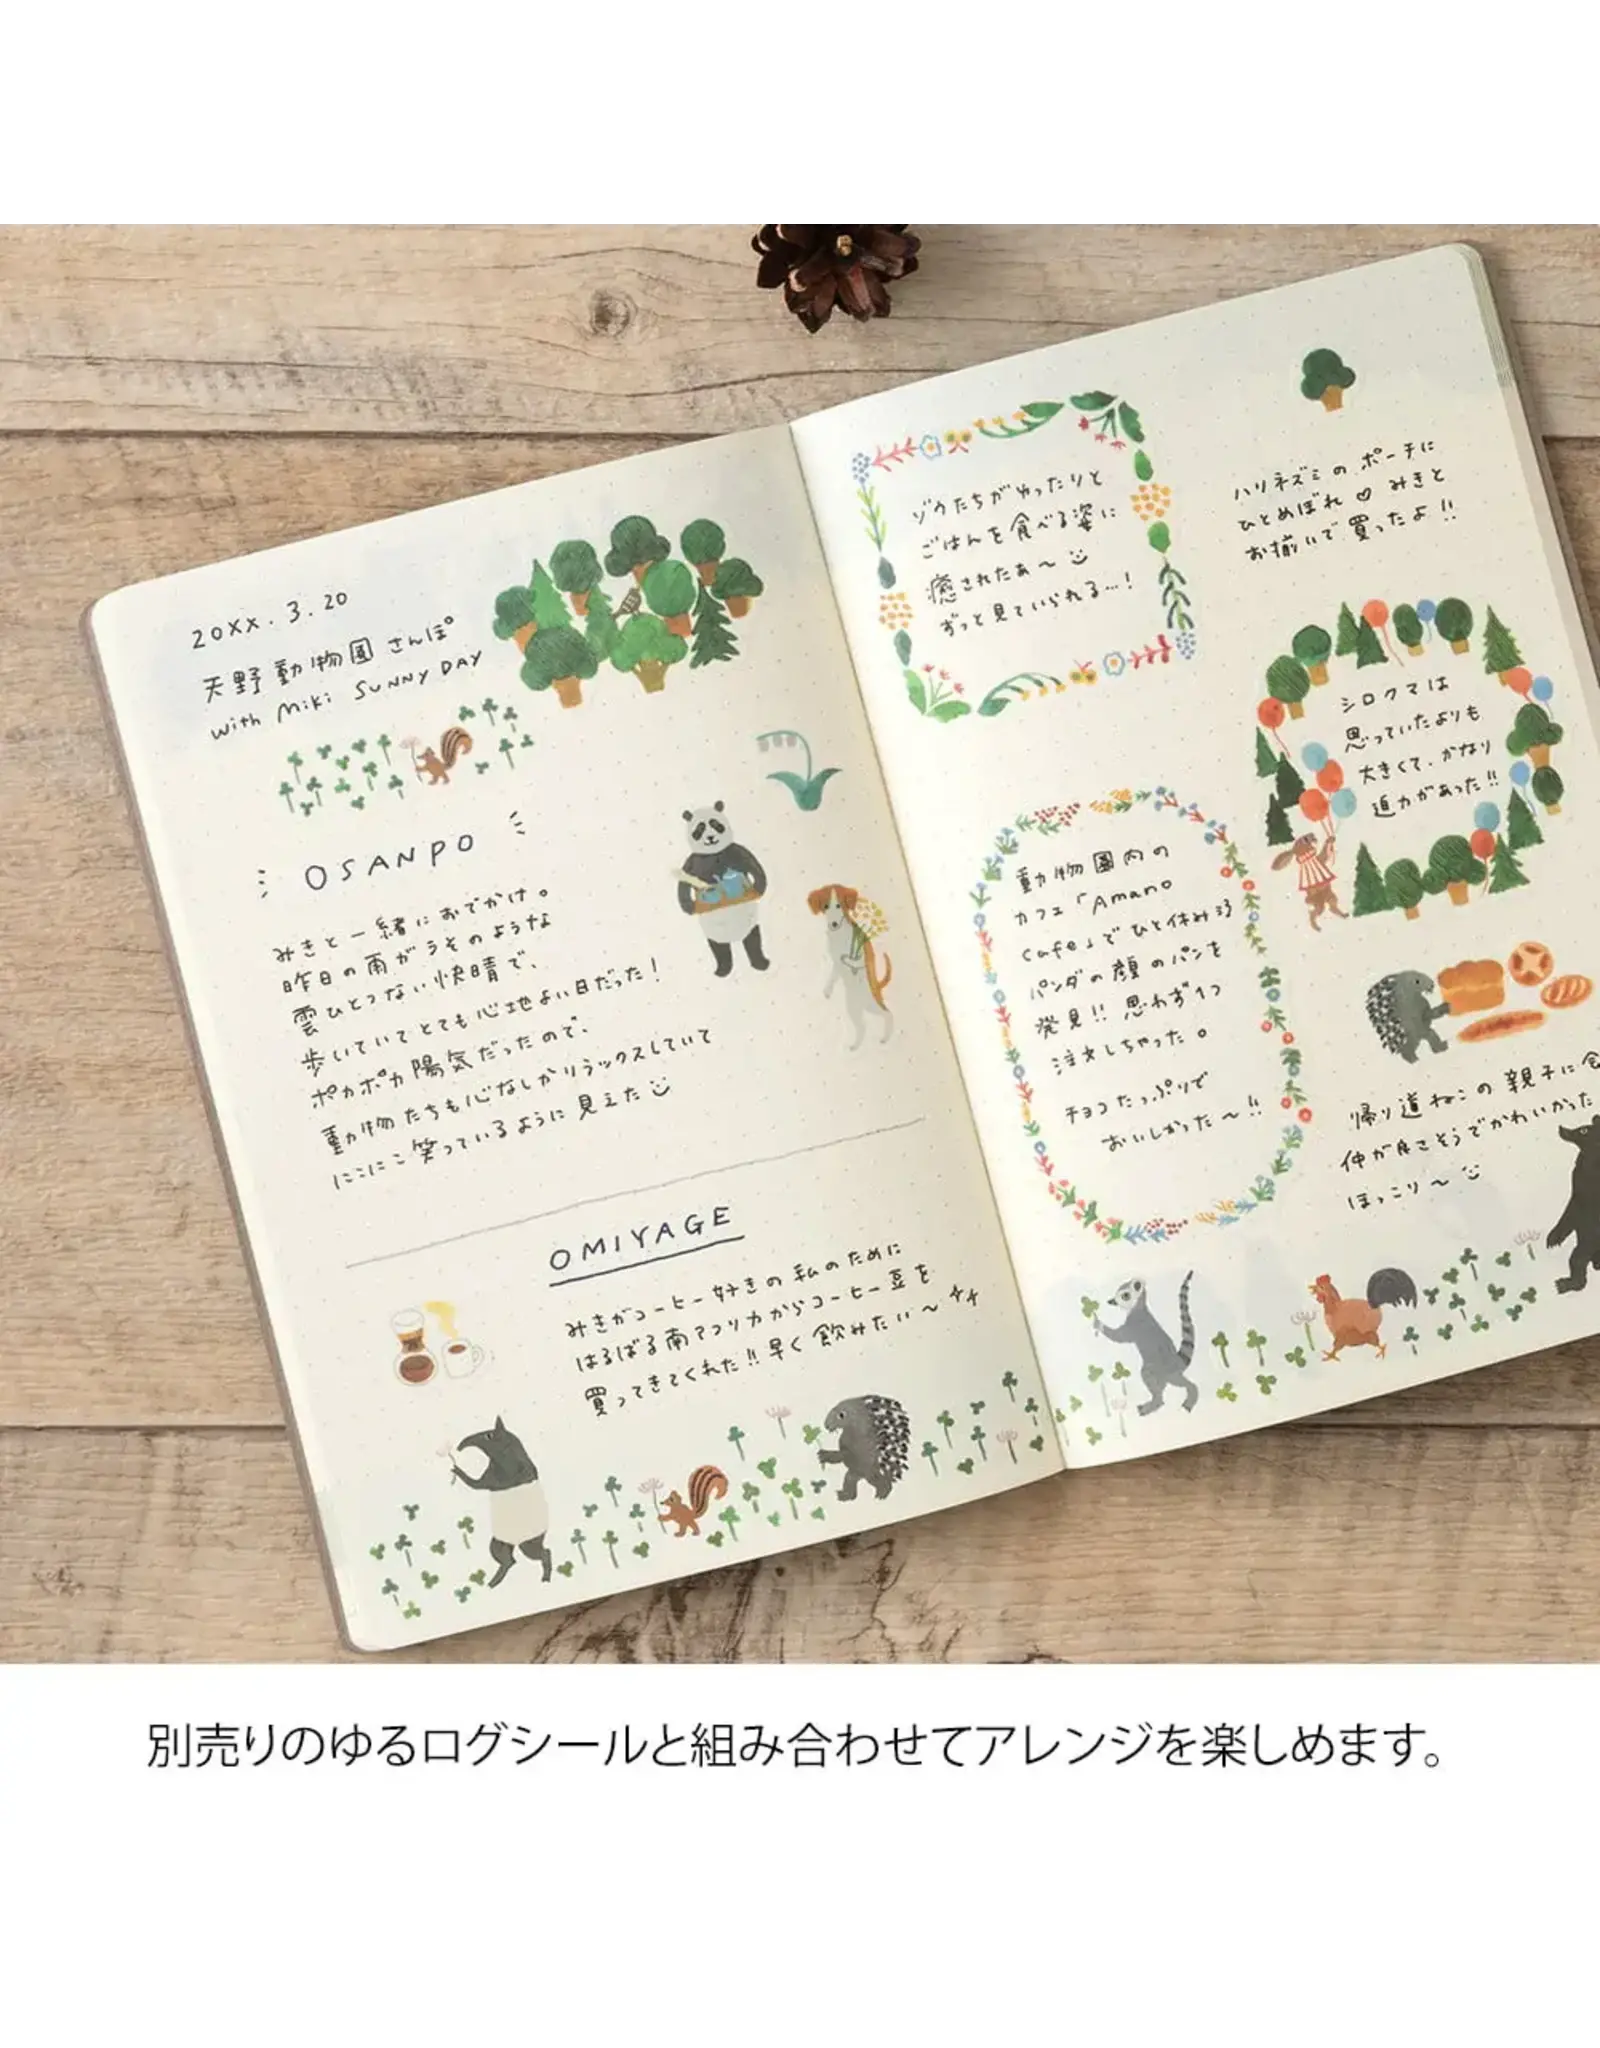 20XX.3.20
天野動物園さんぽ
with Miki SUNNY DAY
OSANPO
みきと一緒におでかけ。
昨日の雨がうそのような
雲ひとつない快晴で、
歩いていてとても心地よい日だった!
ポカポカ陽気だったので、
動物たちも心なしかリラックスしていて
にこにこ笑っているように見えた
OMIYAGE
みきがコーヒー好きの私のために
はるばる南アフリカからコーヒー豆を
買ってきてくれた!!早く飲みたい〜
ゾウたちがゆったりと
ごはんを食べる姿に
癒されたぁ〜
ずっと見ていられる…!
ハリネズミのポーチに
ひとめぼれ♡みきと
お揃いで買ったよ!!
シロクマは
思っていたよりも
大きくて、かなり
迫力があった!!
動物園内の
カフェ「Amano
cafe」でひと休み
パンダの顔のパンを
発見!!思わず1つ
注文しちゃった。
チョコたっぷりで
おいしかった〜!!
帰り道ねこの親子に会
仲が良さそうでかわいかった
ほっこり〜
別売りのゆるログシールと組み合わせてアレンジを楽しめます。